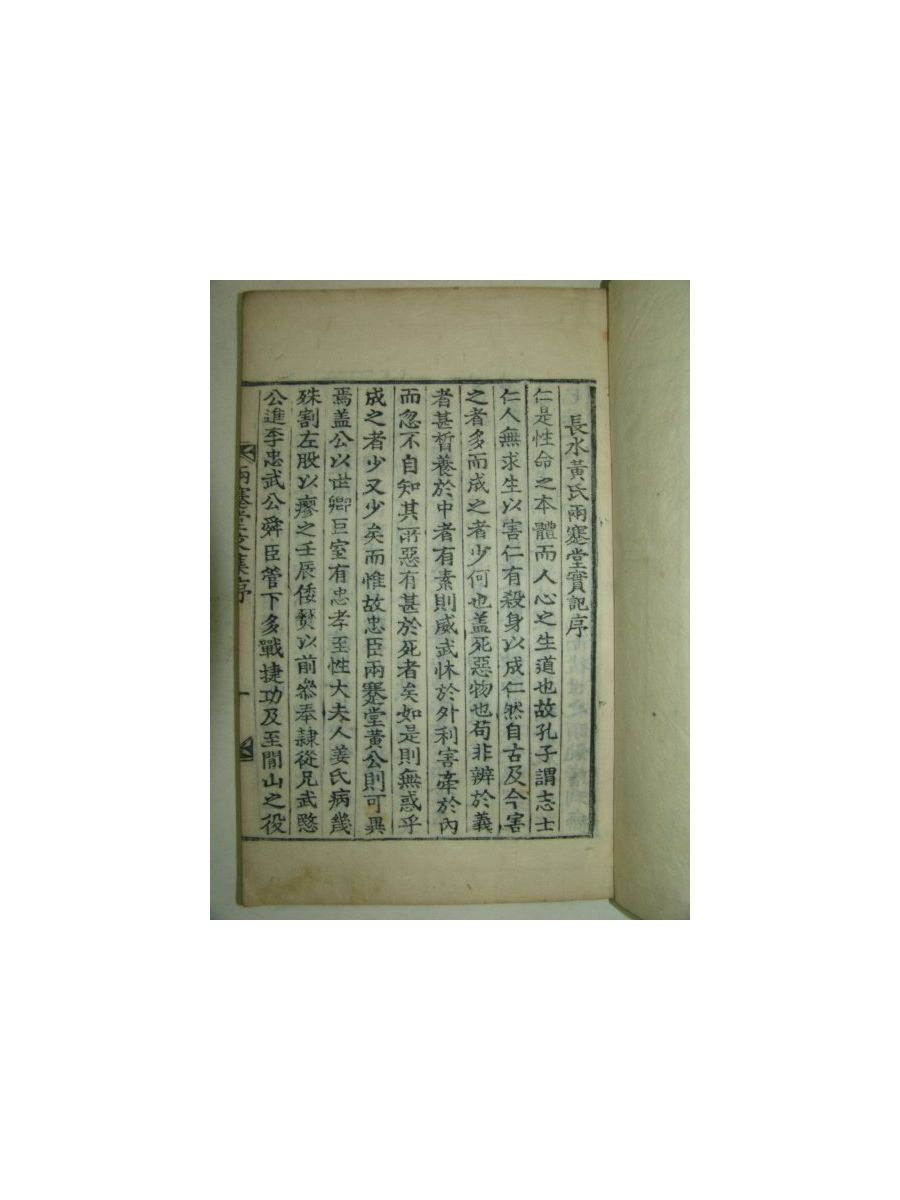 長水黃氏兩蹇堂實記序
仁是性命之本體而人心之生道也故孔子謂志士
仁人無求生以害仁有殺身以成仁然自古及今害
之者多而成之者少何也盖死惡物也苟非辨於義
者甚晳養於中者有素則威武怵於外利害牽於內
而忽不自知其所惡有甚於死者矣如是則無惑乎
成之者少又少矣而惟故忠臣兩蹇堂黃公則可異
焉盖公以世卿巨室有忠孝至性大夫人姜氏病幾
殊割左股以療之壬辰倭燹以前叅奉隷從兄武愍
公進李忠武公舜臣管下多戰捷功及至閒山之役
兩蹇堂文集序
一